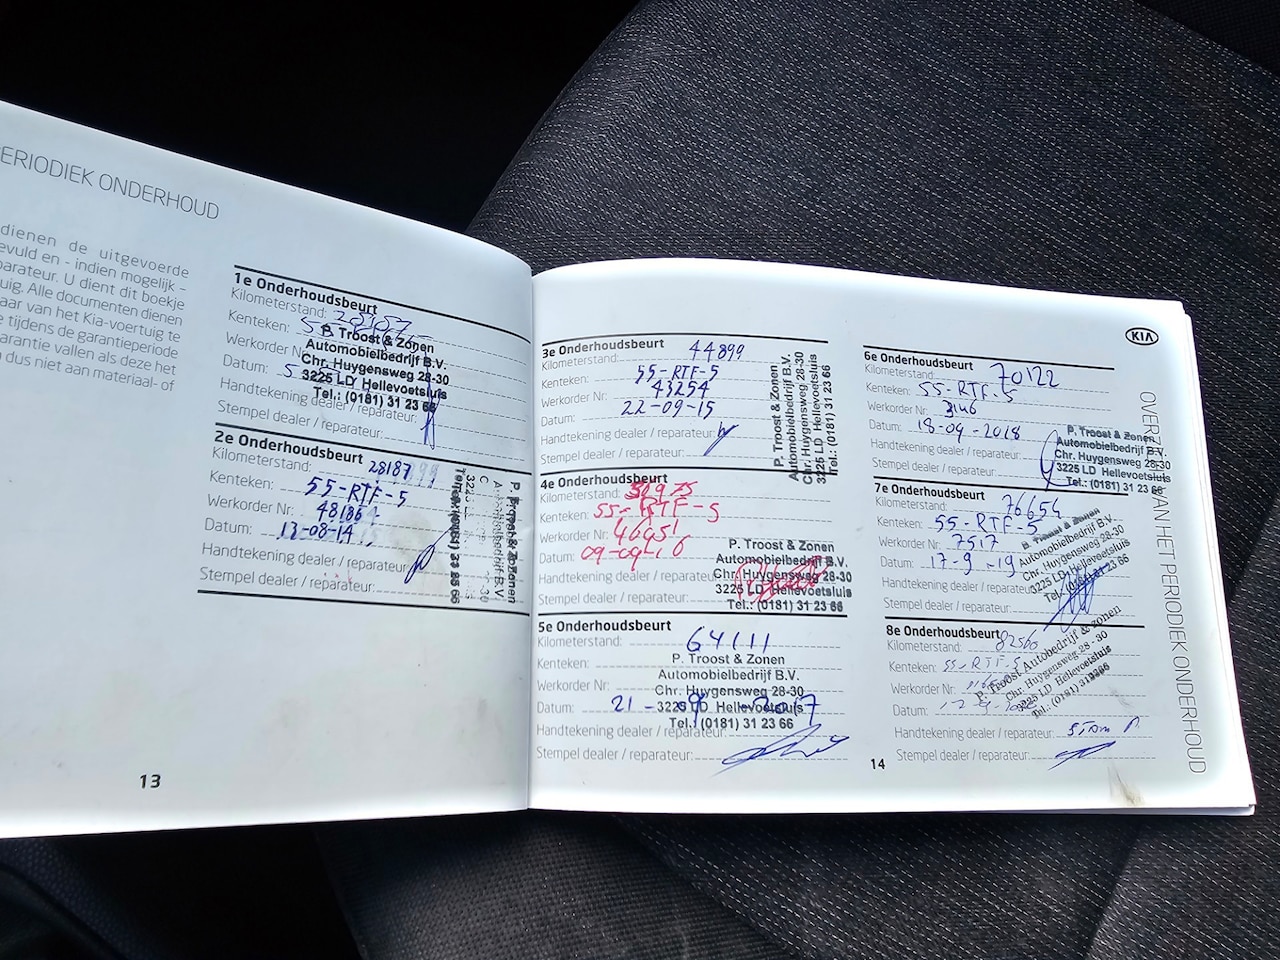 PERIODIEK ONDERHOUD
dienen de uitgevoerde
evuld en - indien mogelijk –
parateur. U dient dit boekje
uig. Alle documenten dienen
aar van het Kia-voertuig te
e tijdens de garantieperiode
arantie vallen als deze het
dus niet aan materiaal- of
1e Onderhoudsbeurt
Kilometerstand:
Kenteken:
Werkorder Nr:
Datum:
Handtekening dealer / reparateur:
Stempel dealer / reparateur:
P. Troost & Zonen
Automobielbedrijf B.V.
Chr. Huygensweg 28-30
3225 LD Hellevoetsluis
Tel.: (0181) 31 23 66
2e Onderhoudsbeurt
Kilometerstand: 28187
Kenteken: 55-RTF-5
Werkorder Nr: 48186
Datum: -08-14
Handtekening dealer / reparateur:
Stempel dealer / reparateur:
13
3e Onderhoudsbeurt
Kilometerstand: 44899
Kenteken: 55-RTF-5
Werkorder Nr: 43254
Datum: 22-09-15
Handtekening dealer / reparateur:
Stempel dealer / reparateur:
P. Troost & Zonen
Automobielbedrijf B.V.
Chr. Huygensweg 28-30
3225 LD Hellevoetsluis
Tel.: (0181) 31 23 66
4e Onderhoudsbeurt
Kilometerstand:
Kenteken: 55-RTF-5
Werkorder Nr: 46451
Datum: 09-09-16
Handtekening dealer / reparateur:
Stempel dealer / reparateur:
P. Troost & Zonen
Automobielbedrijf B.V.
Chr. Huygensweg 28-30
3225 LD Hellevoetsluis
Tel.: (0181) 31 23 66
5e Onderhoudsbeurt
Kilometerstand: 64111
Kenteken:
Werkorder Nr:
Datum: 21-09-2017
Handtekening dealer / reparateur:
Stempel dealer / reparateur:
P. Troost & Zonen
Automobielbedrijf B.V.
Chr. Huygensweg 28-30
3225 LD Hellevoetsluis
Tel.: (0181) 31 23 66
KIA
6e Onderhoudsbeurt
Kilometerstand: 70122
Kenteken: 55-RTF-5
Werkorder Nr: 3146
Datum: 18-09-2018
Handtekening dealer / reparateur:
Stempel dealer / reparateur:
P. Troost & Zonen
Automobielbedrijf B.V.
Chr. Huygensweg 28-30
3225 LD Hellevoetsluis
Tel.: (0181) 31 23 66
7e Onderhoudsbeurt
Kilometerstand: 76654
Kenteken: 55-RTF-5
Werkorder Nr: 7517
Datum: 17-9-19
Handtekening dealer / reparateur:
Stempel dealer / reparateur:
P. Troost & Zonen
Automobielbedrijf B.V.
Chr. Huygensweg 28-30
3225 LD Hellevoetsluis
Tel.: (0181) 31 23 66
8e Onderhoudsbeurt
Kilometerstand: 82560
Kenteken: 55-RTF-5
Werkorder Nr:
Datum:
Handtekening dealer / reparateur:
Stempel dealer / reparateur:
P. Troost Autobedrijf & zonen
Chr. Huygensweg 28 - 30
3225 LD Hellevoetsluis
Tel.: (0181) 312366
14
VAN HET PERIODIEK ONDERHOUD